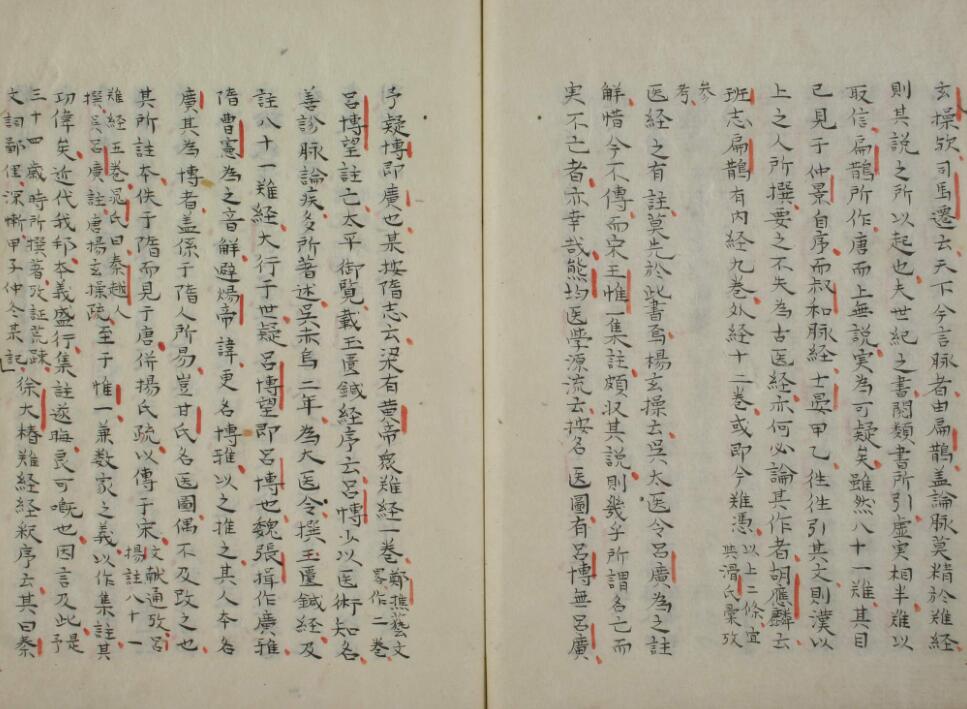 玄操欤司馬遷云天下今言脉者由扁鵲盖論脉莫精於難経
則其説之所以起也夫世紀之書閣類書所引虚実相半難以
取信扁鵲所作唐而上無説実為可疑矣雖然八十一難其目
已見于仲景自序而叔和脉経士晏甲乙徃徃引其文則漢以
上之人所撰要之不失為古医経亦何必論其作者胡應麟云
班志扁鵲有内経九巻外経十二巻或即今難憑以上二條宜
共滑氏彙攷
参
考
医経之有註莫先於此書焉楊玄操云吳太医令呂廣為之註
解惜今不傳而宋王惟一集註頗収其説則幾乎所謂名亡而
実不亡者亦幸哉熊均医學源流云按名医圖有呂博無呂廣
予疑博即廣也某按隋志云梁有黄帝衆難経一巻鄭樵藝文
畧作二巻
呂博望註亡太平御覧載玉匱鍼経序云呂博少以医術知名
善診脉論疾多所著述吳赤烏二年為大医令撰玉匱鍼経及
註八十一難経大行于世疑呂博望即呂博也魏張揖作廣雅
隋曹憲為之音解避煬帝諱更名博雅以之推之其人本名
廣其為博者盖係于隋人所易豈甘氏名医圖偶不及改之也
其所註本佚于隋而見于唐併揚氏疏以傳于宋文献通攷呂
揚註八十一
難経五巻晁氏曰秦越人
撰吳呂廣註唐揚玄操疏至于惟一兼数家之義以作集註其
功偉矣近代我邦本義盛行集註遂晦良可嘅也因言及此是予
三十四歳時所撰著攷証荒踈
文詞鄙俚深慚甲子仲冬某記徐大椿難経経釈序云其曰秦